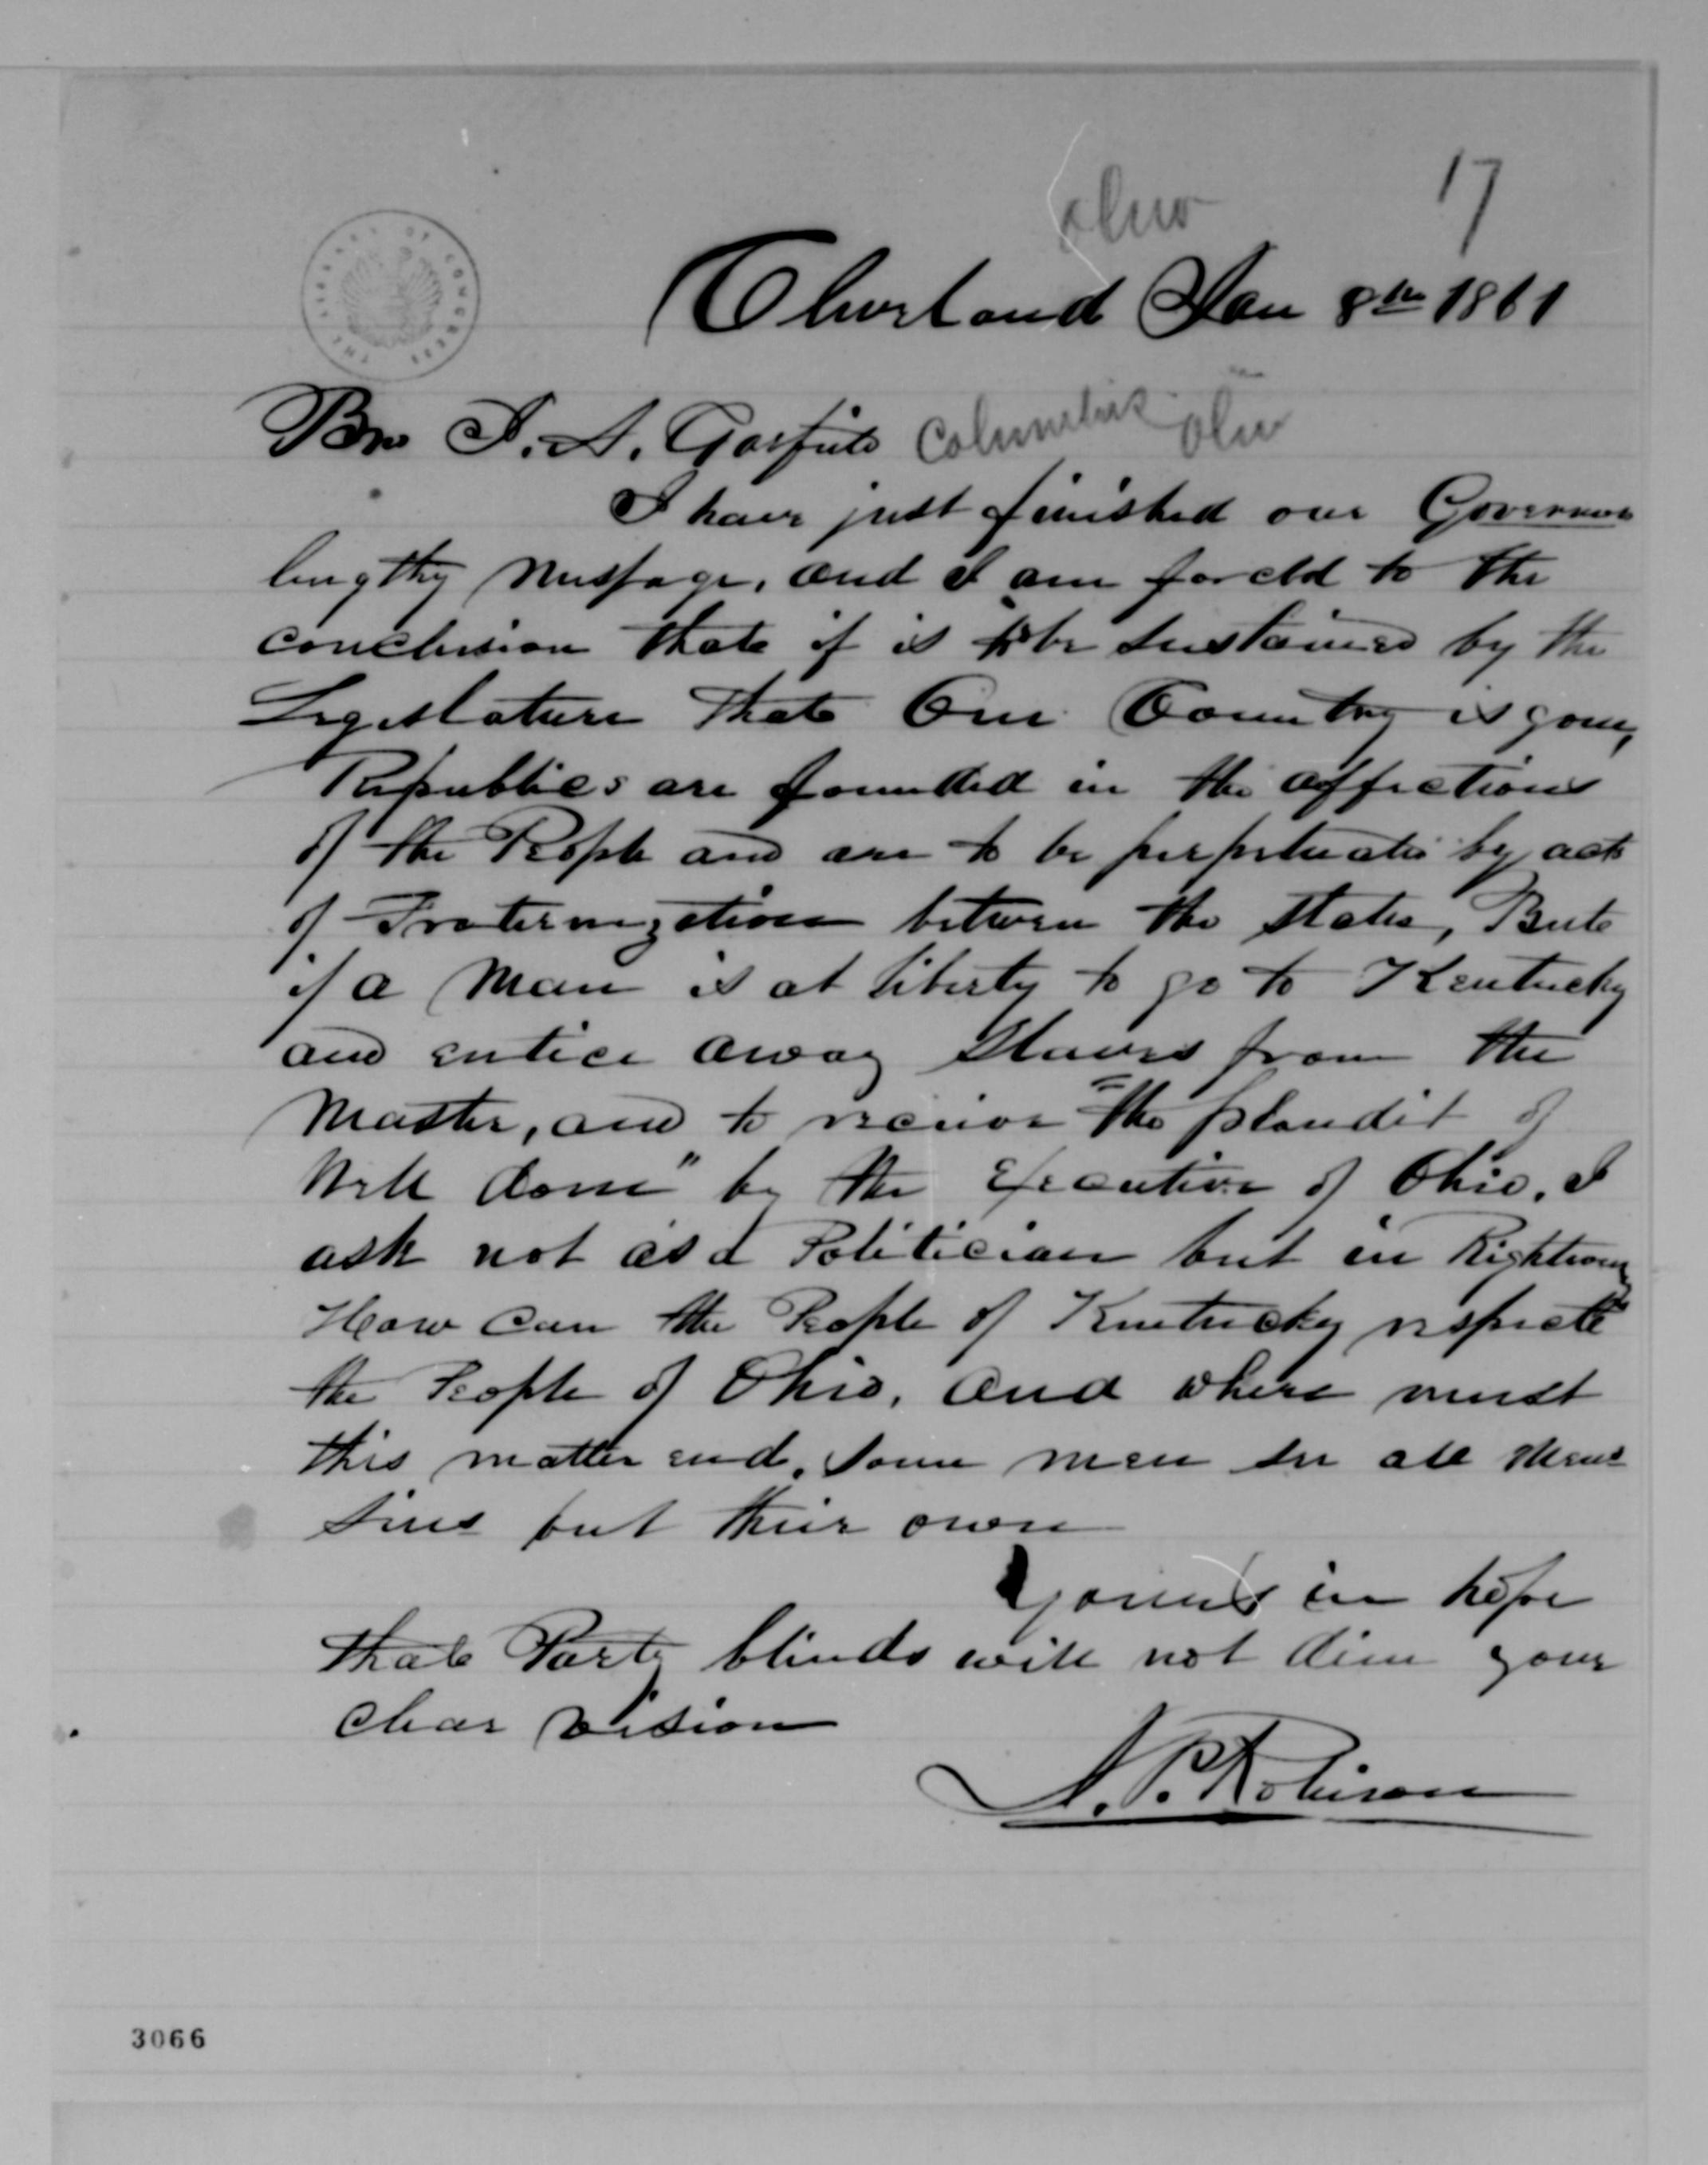 Ohio
17
Cleveland Jan 8th 1861
THE LIBRARY OF CONGRESS
Bro J. A. Garfield Columbus Ohio
I have just finished our Governors
lengthy message, and I am forced to the
conclusion that if is to be sustained by the
Legislature that Our Country is gone,
Republics are founded in the affections
of the People and are to be perpetuated by acts
of Fraternization between the States, But
if a man is at liberty to go to Kentucky
and entice away Slaves from the
Master, and to receive "the plaudit of
Well done" by the Executive of Ohio. I
ask not as a Politician but in Righteousness
How can the People of Kentucky respect
the People of Ohio, and where must
this matter end. Some men see all mens
sins but their own
Yours in hope
that Party blinds will not dim your
clear vision
J. P. Robison
3066